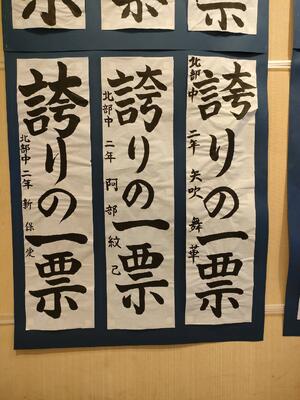 誇りの一票
北部中 二年 矢吹 舞華
誇りの一票
北部中 二年 阿部 紋己
誇りの一票
北部中 二年 新保